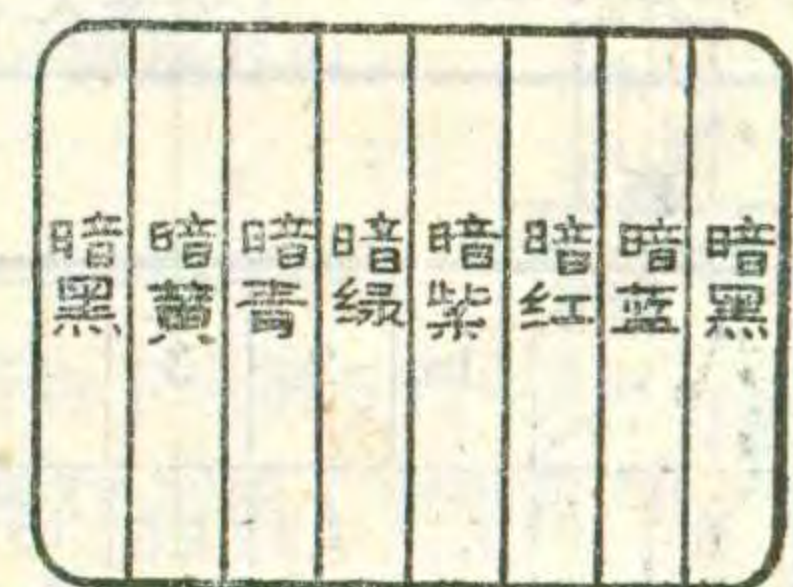 暗黑
暗黄
暗青
暗绿
暗紫
暗红
暗蓝
暗黑